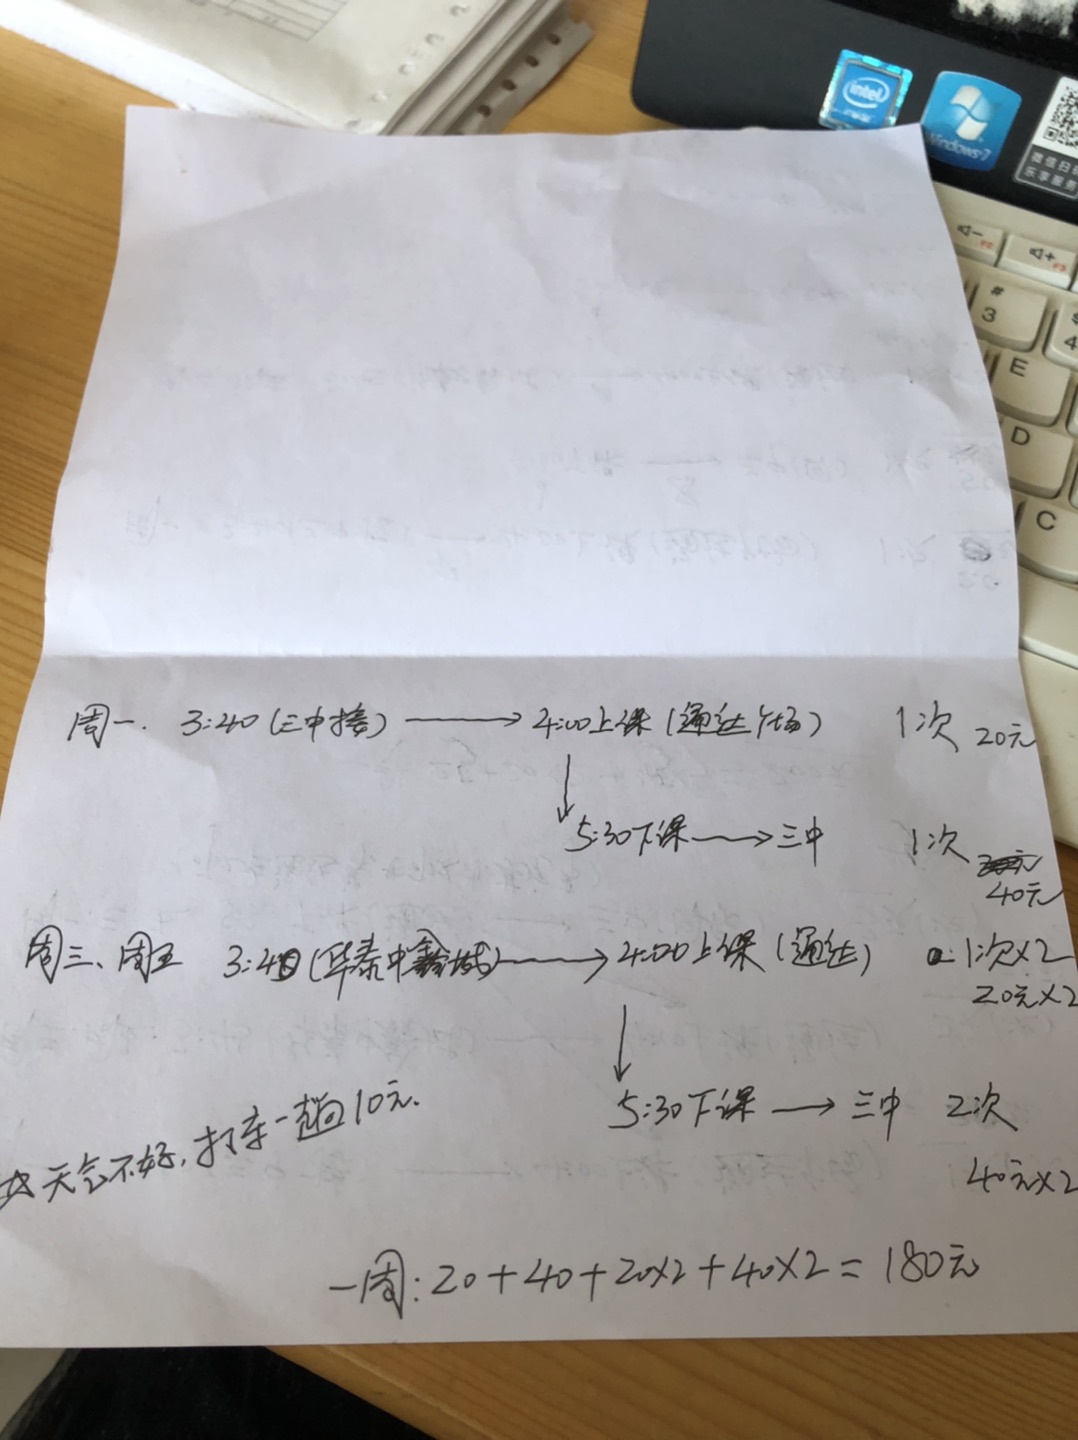 intel
Windows 7
微信扫
乐享服务
F2
F3
#
3
4
E
D
C
周一. 3:40(三中接) → 4:00上课(通达广场) 1次 20元
↓
5:30下课 → 三中 1次
40元
周三、周五 3:40(华泰中鑫城) → 4:00上课(通达) 1次×2
20元×2
↓
5:30下课 → 三中 2次
40元×2
☆天气不好,打车一趟10元.
一周: 20+40+20×2+40×2=180元